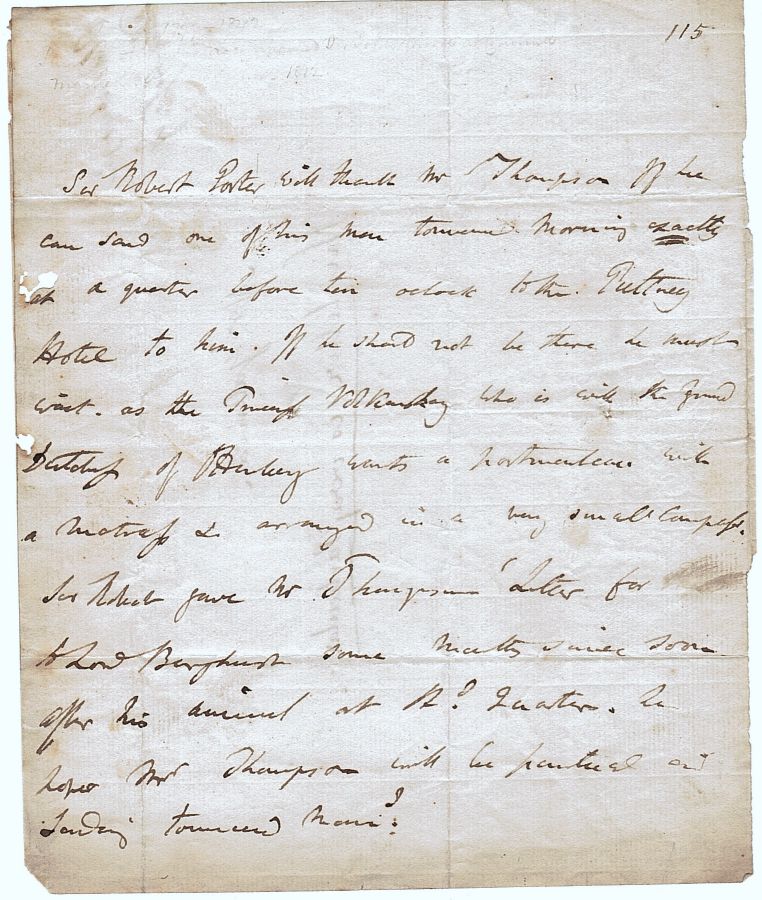 115
1812
Sir Robert Porter will thank Mr Thompson If he
can send one of his men tomorrow Morning exactly
at a quarter before ten oclock to the Pultney
Hotel to him. If he should not be there he must
wait. as the Prince who is with the Grand
Dutchess of wants a portmanteau with
a matrass &c arranged in a very small Compass.
Sir Robert gave Mr Thompsons Letter for
to Lord some Months since soon
after his arrival at Hd Quaters. he
hopes Mr Thompson will be punctual in
Sending tomorrow